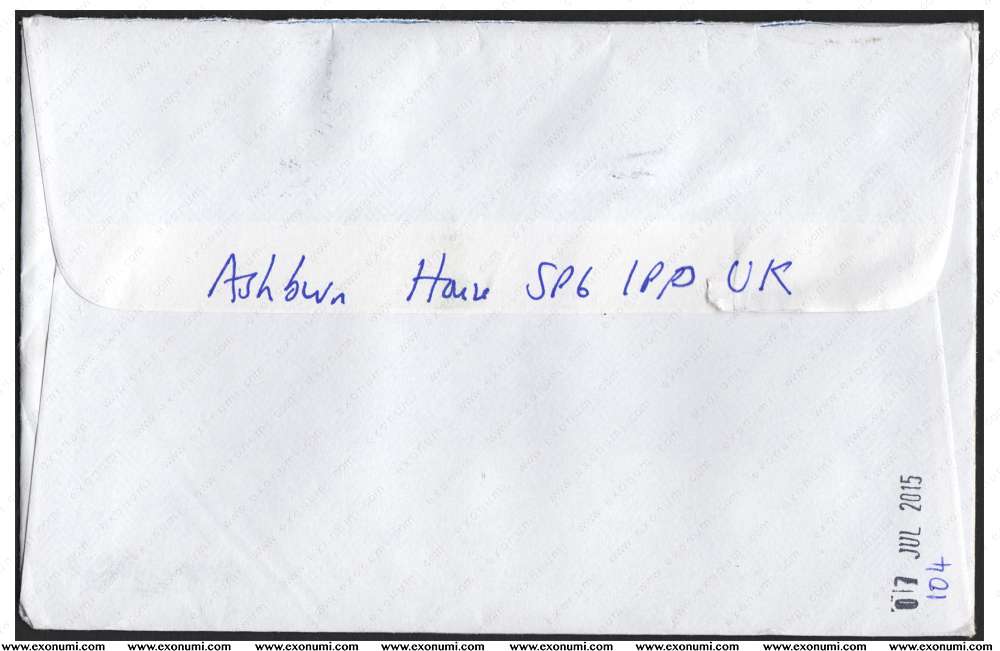 Ashburn House SP6 1PP UK
07 JUL 2015
104
www.exonumi.com www.exonumi.com www.exonumi.com www.exonumi.com www.exonumi.com www.exonumi.com www.exonumi.com www.exonumi.com